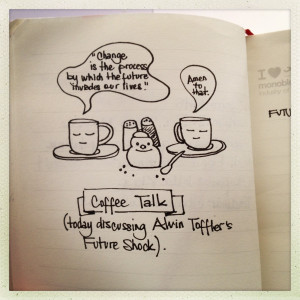 "Change
is the process
by which the future
invades our lives."
Amen
to
that.
Coffee Talk
(today discussing Alvin Toffler's
Future Shock).
I ♥
FUTU